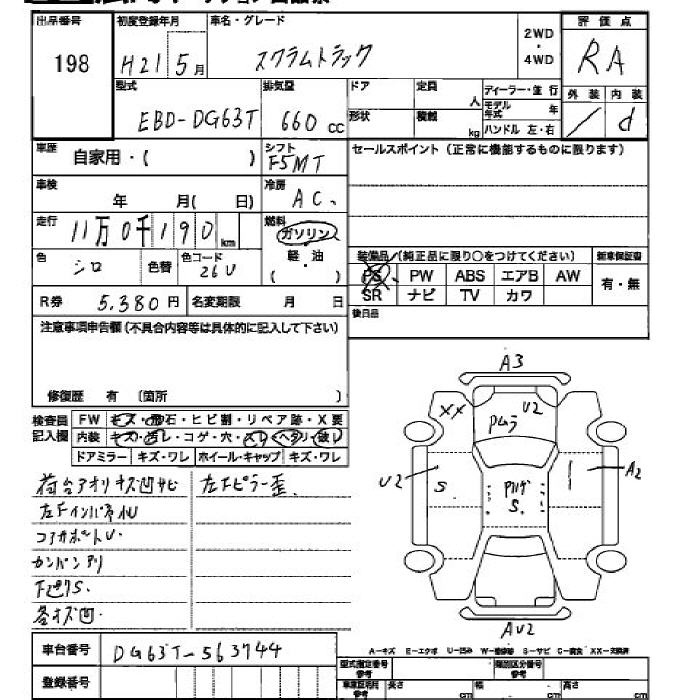 出品番号 初度登録年月 車名・グレード 評価点
198 H21 5月 スクラムトラック 2WD・4WD RA
型式 排気量 ドア 定員 人 ディーラー・並行 外装 内装
EBD-DG63T 660cc 形状 積載 kg モデル年式 年 ハンドル 左・右 / d
車歴 自家用・( ) シフト F5MT セールスポイント(正常に機能するものに限ります)
車検 年 月(日) 冷房 AC、
走行 11万0千190km 燃料 ガソリン
色 シロ 色替 色コード 26U 軽・油 ( )
装備品/(純正品に限り○をつけてください) 新車保証書
PS PW ABS エアB AW 有・無
SR ナビ TV カワ
R券 5.380円 名変期限 月 日
後日品
注意事項申告欄(不具合内容等は具体的に記入して下さい)
修復歴 有 〔箇所 〕
検査員記入欄 FW キズ・飛石・ヒビ割・リペア跡・X要
内装 キズ・ヨゴレ・コゲ・穴・スレ・ヘタリ・破レ
ドアミラー キズ・ワレ ホイール・キャップ キズ・ワレ
荷台アオリキズ凹サビ 左Fピラー歪、
左FインパネU
コアサポートU・
カンバンアリ
下廻りS.
各キズ凹.
A3
XX U2
Pムラ
U2 S. S. A2
AU2
A-キズ E-エクボ U-凹み W-補修跡 S-サビ C-腐食 XX-交換済
車台番号 DG63T-563744
登録番号
型式指定番号 参考 類別区分番号 参考
長さ cm 幅 cm 高さ cm